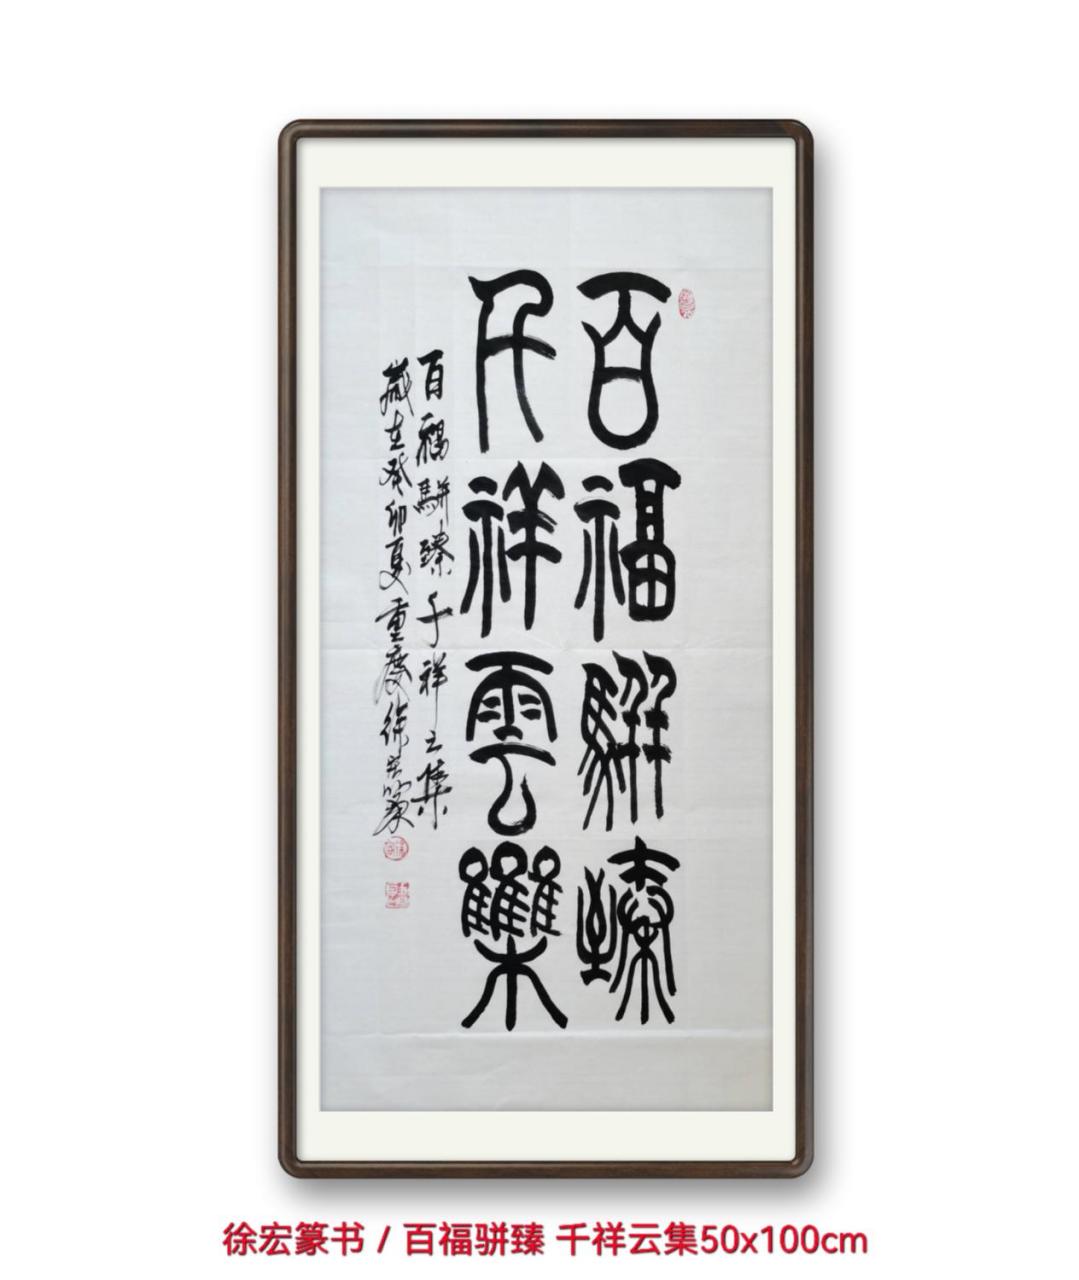 百福駢臻
千祥雲集
百福駢臻千祥云集
歲在癸卯夏重慶徐宏篆
徐宏篆书 / 百福骈臻 千祥云集50x100cm